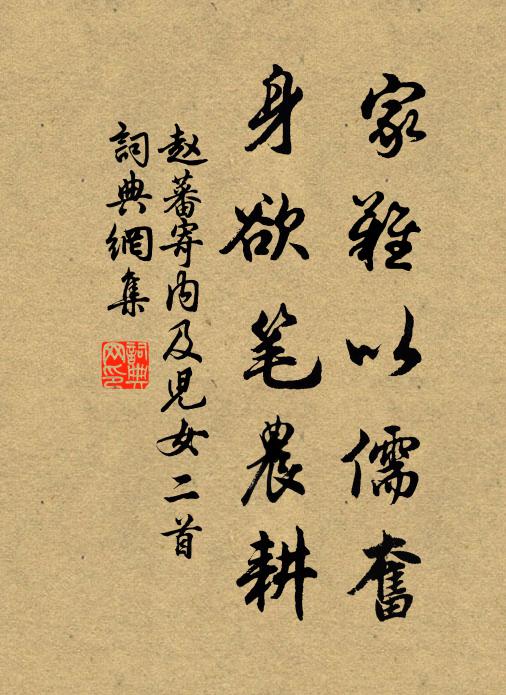 家難以儒奮
身欲笔農耕
赵蕃寄内及兒女二首
詞典網集
詞典网印